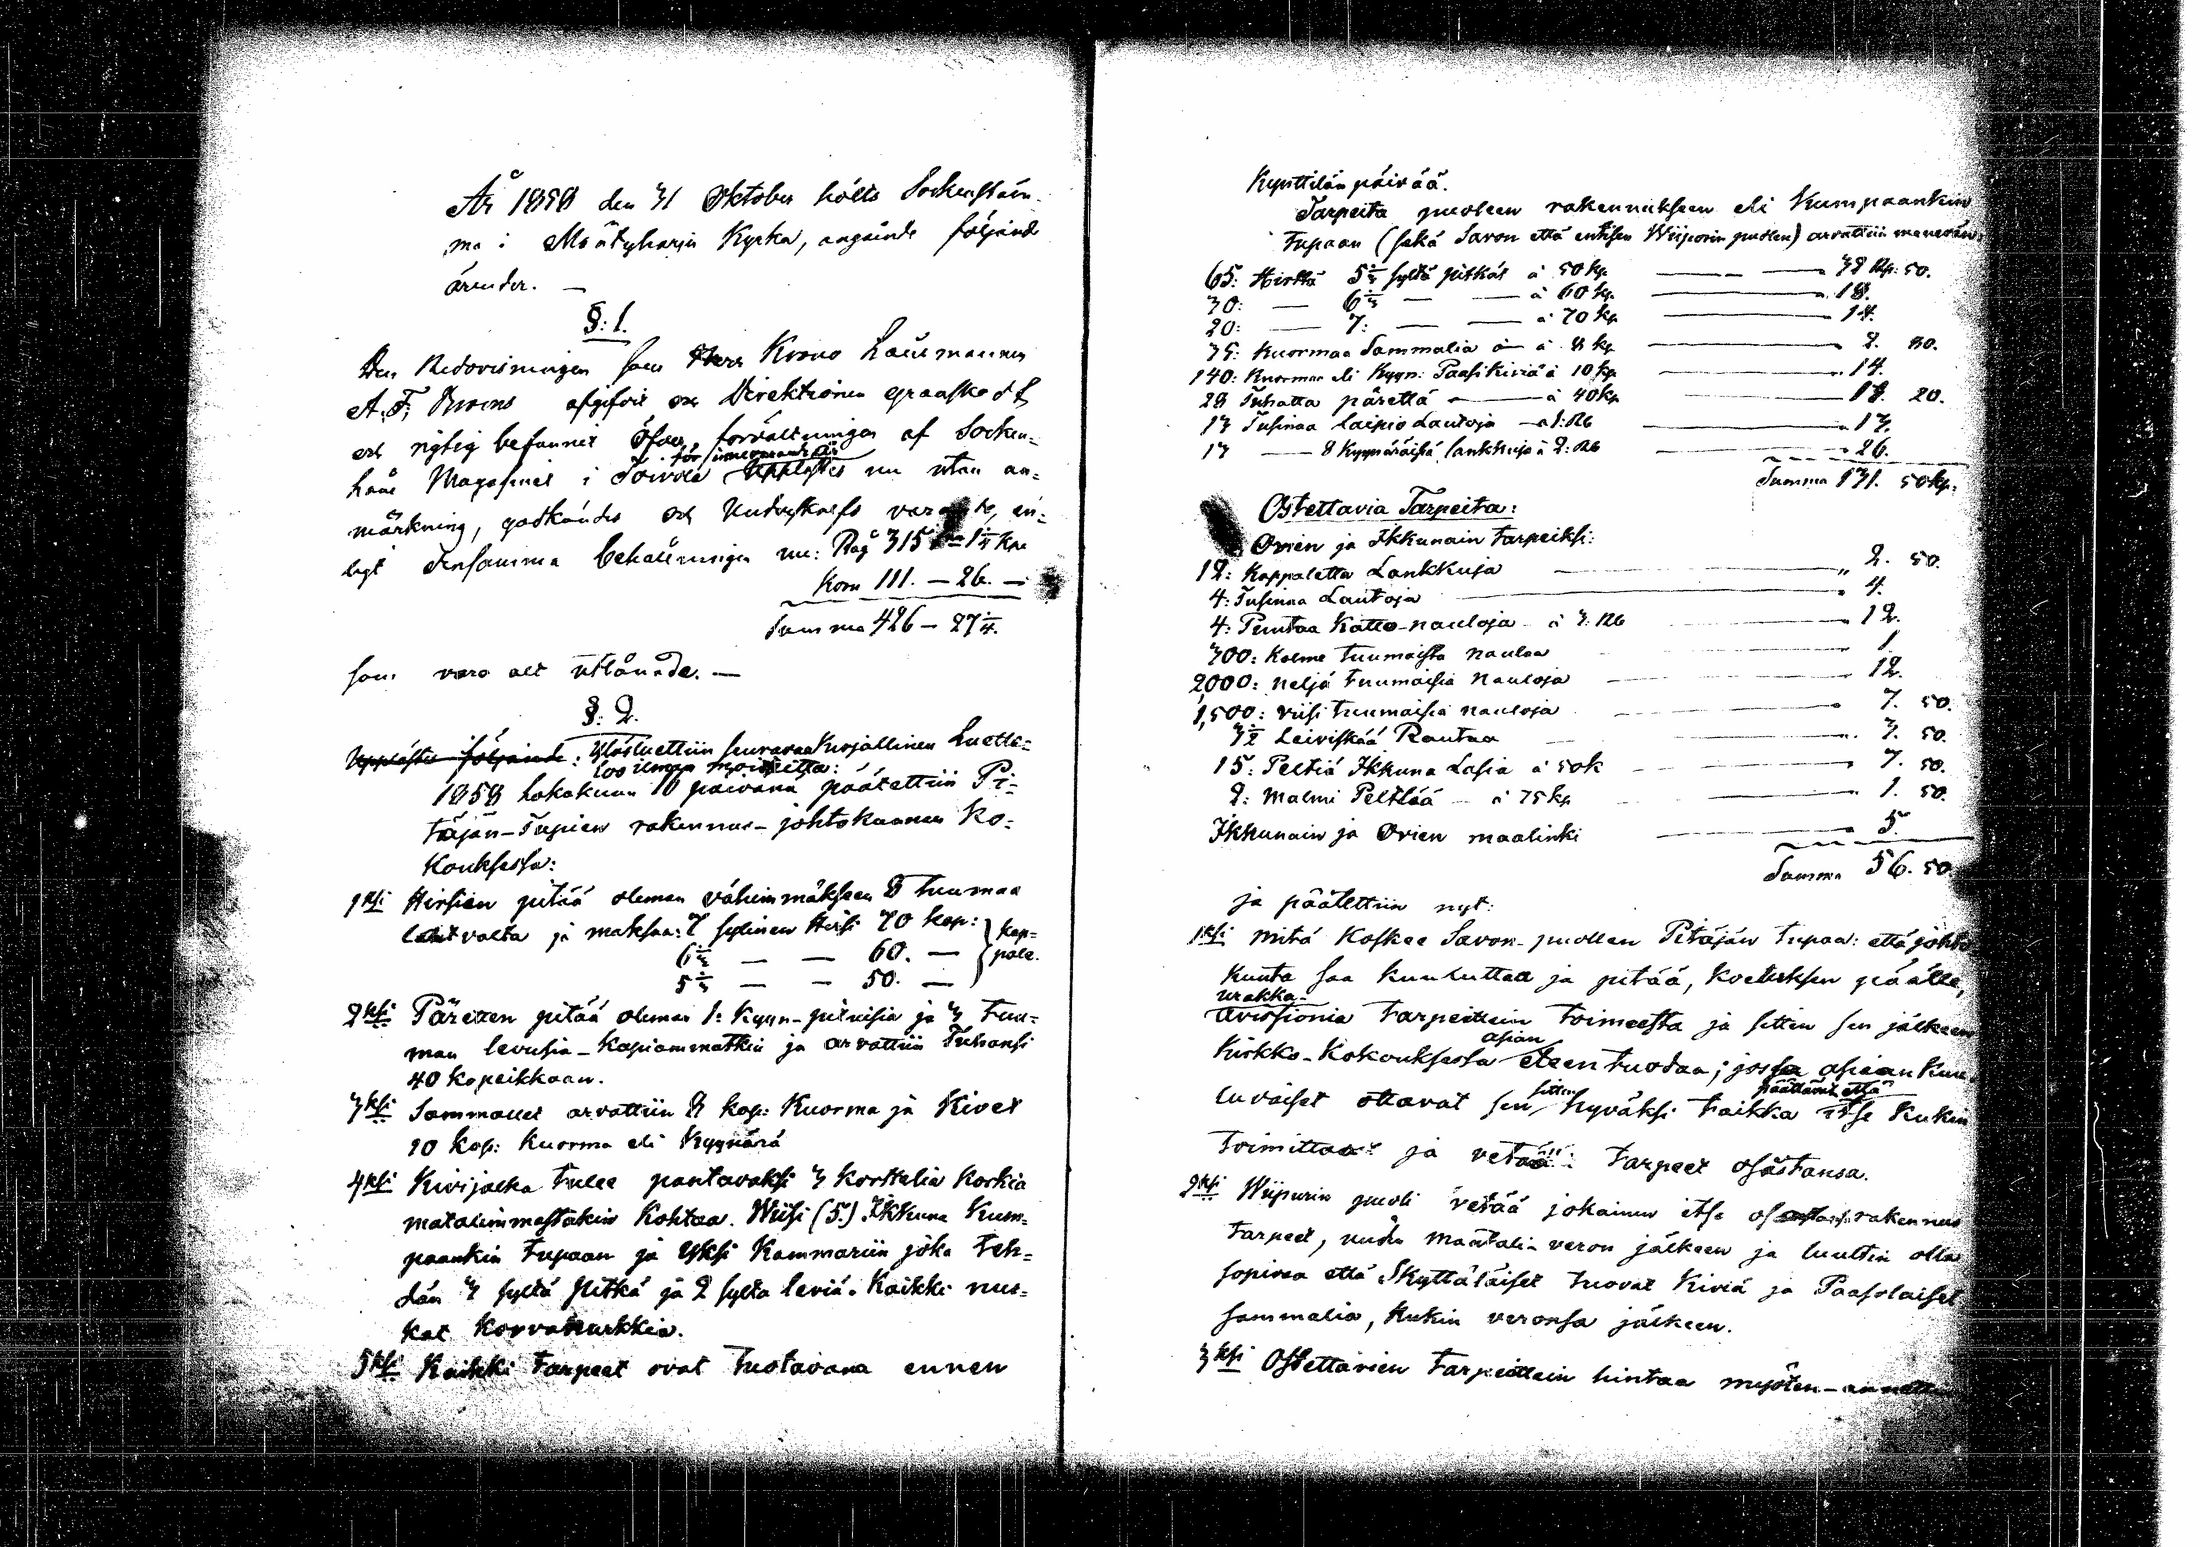 År 1858 den 31 Oktober hölts Sockenstäm-
ma i Mäntyharju Kyrka, angående följande
ärender. —
§: 1.
Den Redovisningen som Herr Krono Länsmannen
A. F. afgifvit och Direktionen granskadt
och rigtig befunnit öfver förvaltningen af Socken-
för innevarande år
håns Magasinet i Toivola Upplästes nu utan an-
märkning, godkändes och Undersktrefs varande, en-
ligt densamma behållningen nu: Råg 315 1 1/4 Kpr
Korn 111. — 26. —
Summa 426 — 27 1/4.
som voro alt utlånade. —
§: 2.
Upplästes följande: Ylösluettiin seuraava Kirjallinen Luette-
loo ilman moitetta:
1858 Lokakuun 10 päivänä päätettiin Pi-
täjän-Tupien rakennus-johtokunnan Ko-
kouksessa:
1ksi Hirsien pitää oleman vähimmäksen 8 tuumaa
latvalta ja maksaa: 7 sylinen Hirsi 70 kop: } kap-
6 1/2 — — 60. — } pale.
5 1/2 — — 50. — }
2ksi Päreten pitää oleman 1: Kyyn-pituisia ja 3 tuu-
man levusia - Kapiammatkin ja arvattiin Tuhansi
40 kopeikkaan.
3ksi Sammalet arvattiin 8 kop: Kuorma ja Kivet
10 kop: Kuorma eli Kyynärä
4ksi Kivijalka tulee pantavaksi 3 Korttelia Korkia
matalimmastakin Kohtaa. Wiisi (5.) Ikkuna Kum-
paankin tupaan ja yksi Kammariin joka teh-
dän 3 syltä pitkä ja 2 syltä leviä. Kaikki nur-
kat Korvanurkkia.
5ksi Kaikki Tarpeet ovat tuotavana ennen
Kynttilän päivää.
Tarpeita puoleen rakennukseen eli Kumpaankin
tupaan (sekä Savon että entisen Wiiporin puolen) arvattiin menevän:
65: Hirttä 5 1/2 syltä pitkät à 50 kp. — — 32 Rp: 50.
30: — 6 1/2 — — à 60 kp. — 18.
20: — 7: — — à 70 kp — 14.
35: Kuormaa Sammalia à — à 8 kp — 2. 80.
140: Kuormaa eli Kyyn: Paasi Kiviä à 10 kp — 14.
28 Tuhatta pärettä — à 40 kp — 11. 20.
13 Tusinaa laipio Lautoja — à 1: Rb — 13.
13 — 8 Kyynäräisiä lankkuja à 2: Rb — 26.
Summa 131. 50 kp.
Ostettavia Tarpeita:
Ovien ja Ikkunain tarpeiksi:
12: Kappaletta Lankkuja — „ 2. 50.
4: Tusinaa Lautoja — 4.
4: Puntaa Katto-nauloja à 3: Rb — 12.
300: Kolme tuumaista naulaa — 1
2,000: neljä tuumaisia nauloja — 12.
1,500: viisi tuumaisia nauloja — 7. 50.
3 1/2 Leiviskää Rautaa — 3. 50.
15: Peltiä Ikkuna Lasia à 50 k — 7. 50.
2: Malmi Peltiää — à 75 kp — 1. 50.
Ikkunain ja Ovien maalinki — 5.
Summa 56. 50.
ja päätettiin nyt:
1ksi mitä Koskee Savon-puollen Pitäjän tupaa: että johto
kunta saa kuuluttaa ja pitää, koetuksen päälle,
urakka-
avissionia tarpeittein toimeesta ja sitten sen jälkeen
asian
Kirkko-Kokouksessa eteen tuodaa; jossa asiaan kuu-
sitten päättävät että
luvaiset ottavat sen hyväksi taikka itse Kukin
toimittaa ja vetää tarpeet osastansa.
2ksi Wiipurin puoli vetää jokainen itse rakennus
tarpeet, mäntali veron jälkeen ja luultin olla
sopiva että Skyttäläiset tuovat Kiviä ja Paasolaiset
sammalia, Kukin veronsa jälkeen.
3ksi Ostettavien tarpeittein hintaa myöten